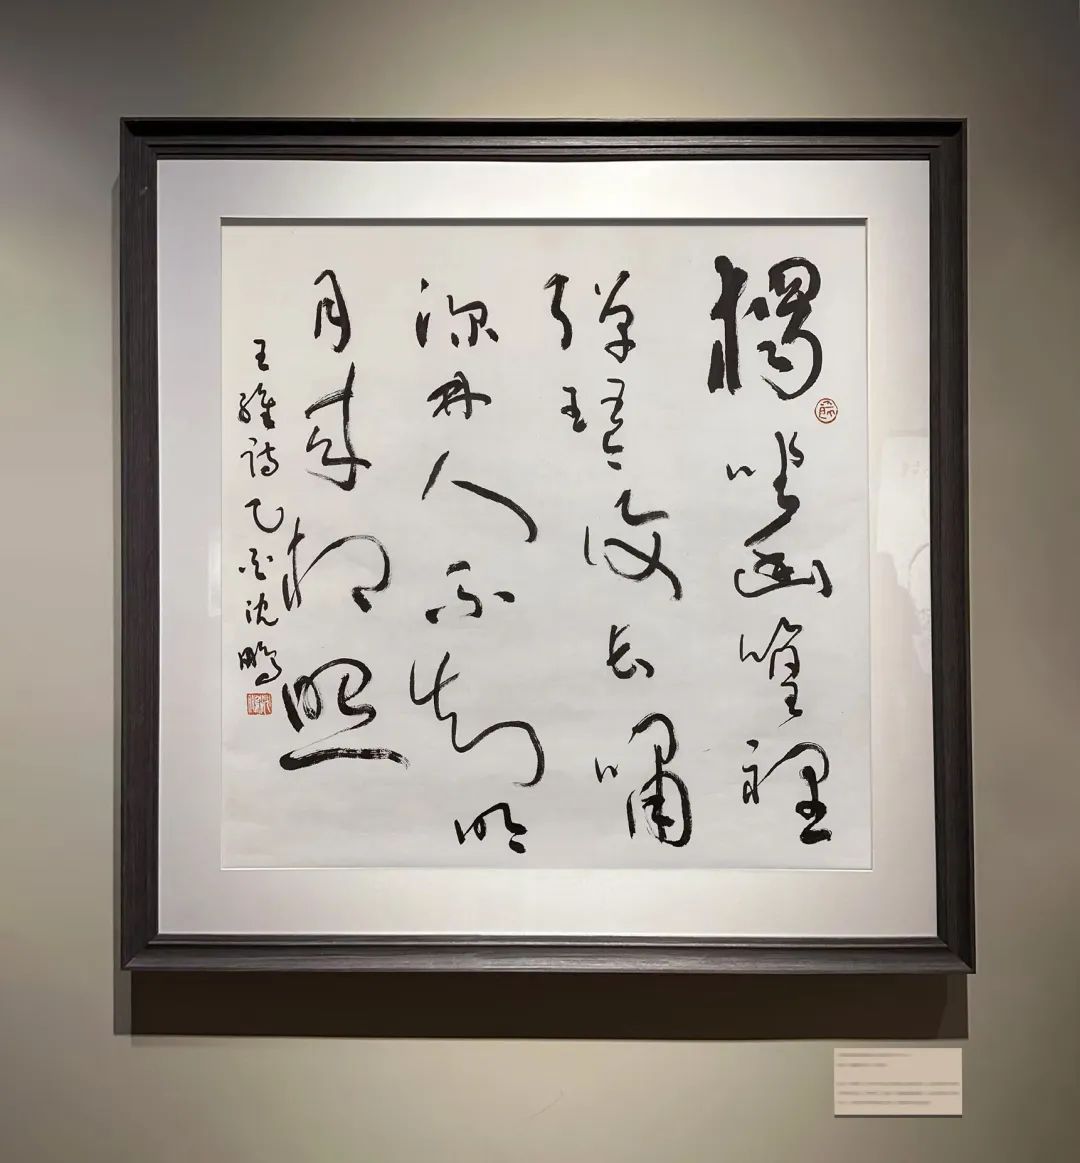 獨坐幽篁裡
彈琴復長嘯
深林人不知明
月來相照
王維詩乙酉沈鵬